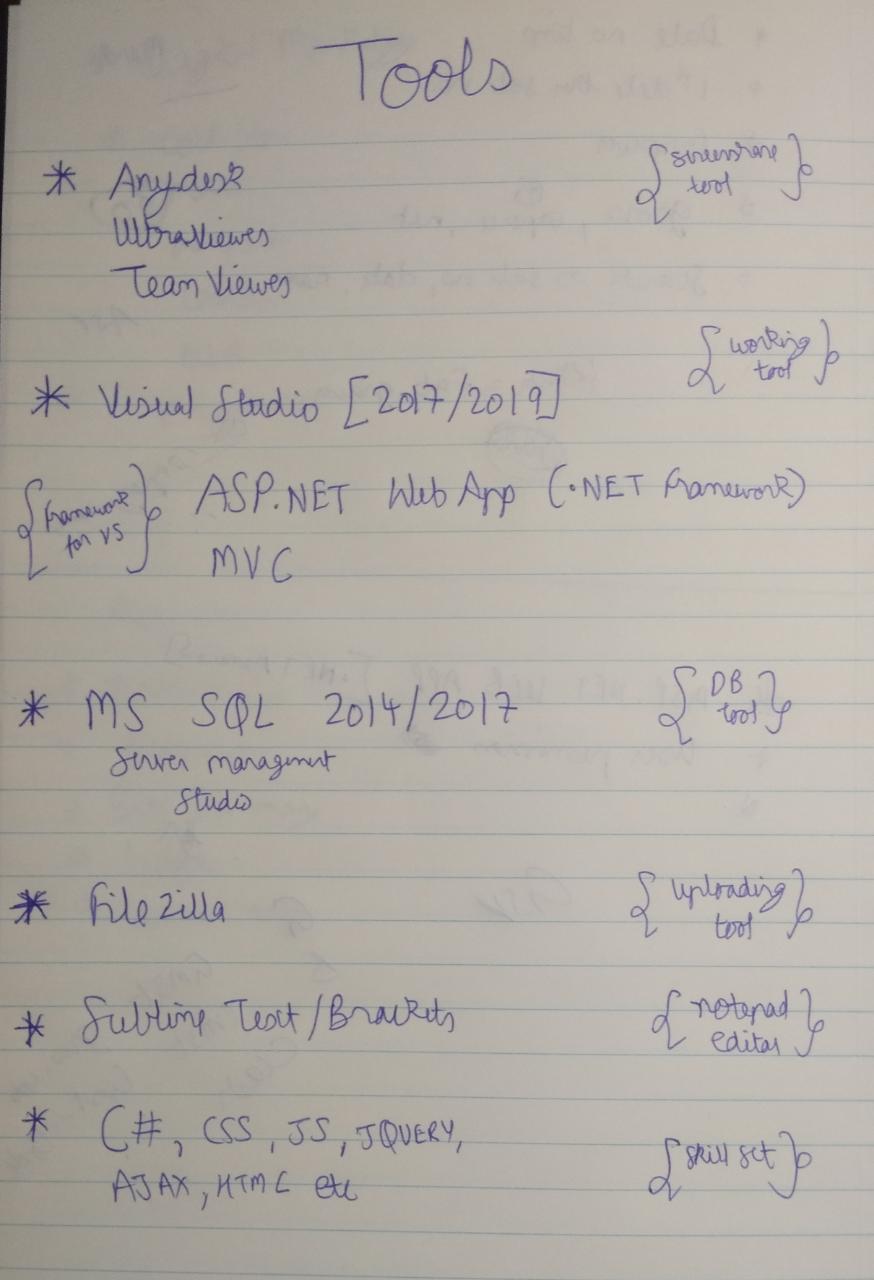 Tools
* Anydesk {screenshare tool}
UltraViewer
TeamViewer
{working tool}
* Visual Studio [2017/2019]
{framework for VS} ASP.NET Web App (.NET framework)
MVC
* MS SQL 2014/2017 {DB tool}
Server managment
Studio
* FileZilla {uploading tool}
* Sublime Text/Brackets {notepad editor}
* C#, CSS, JS, JQUERY,
AJAX, HTML etc {skill set}